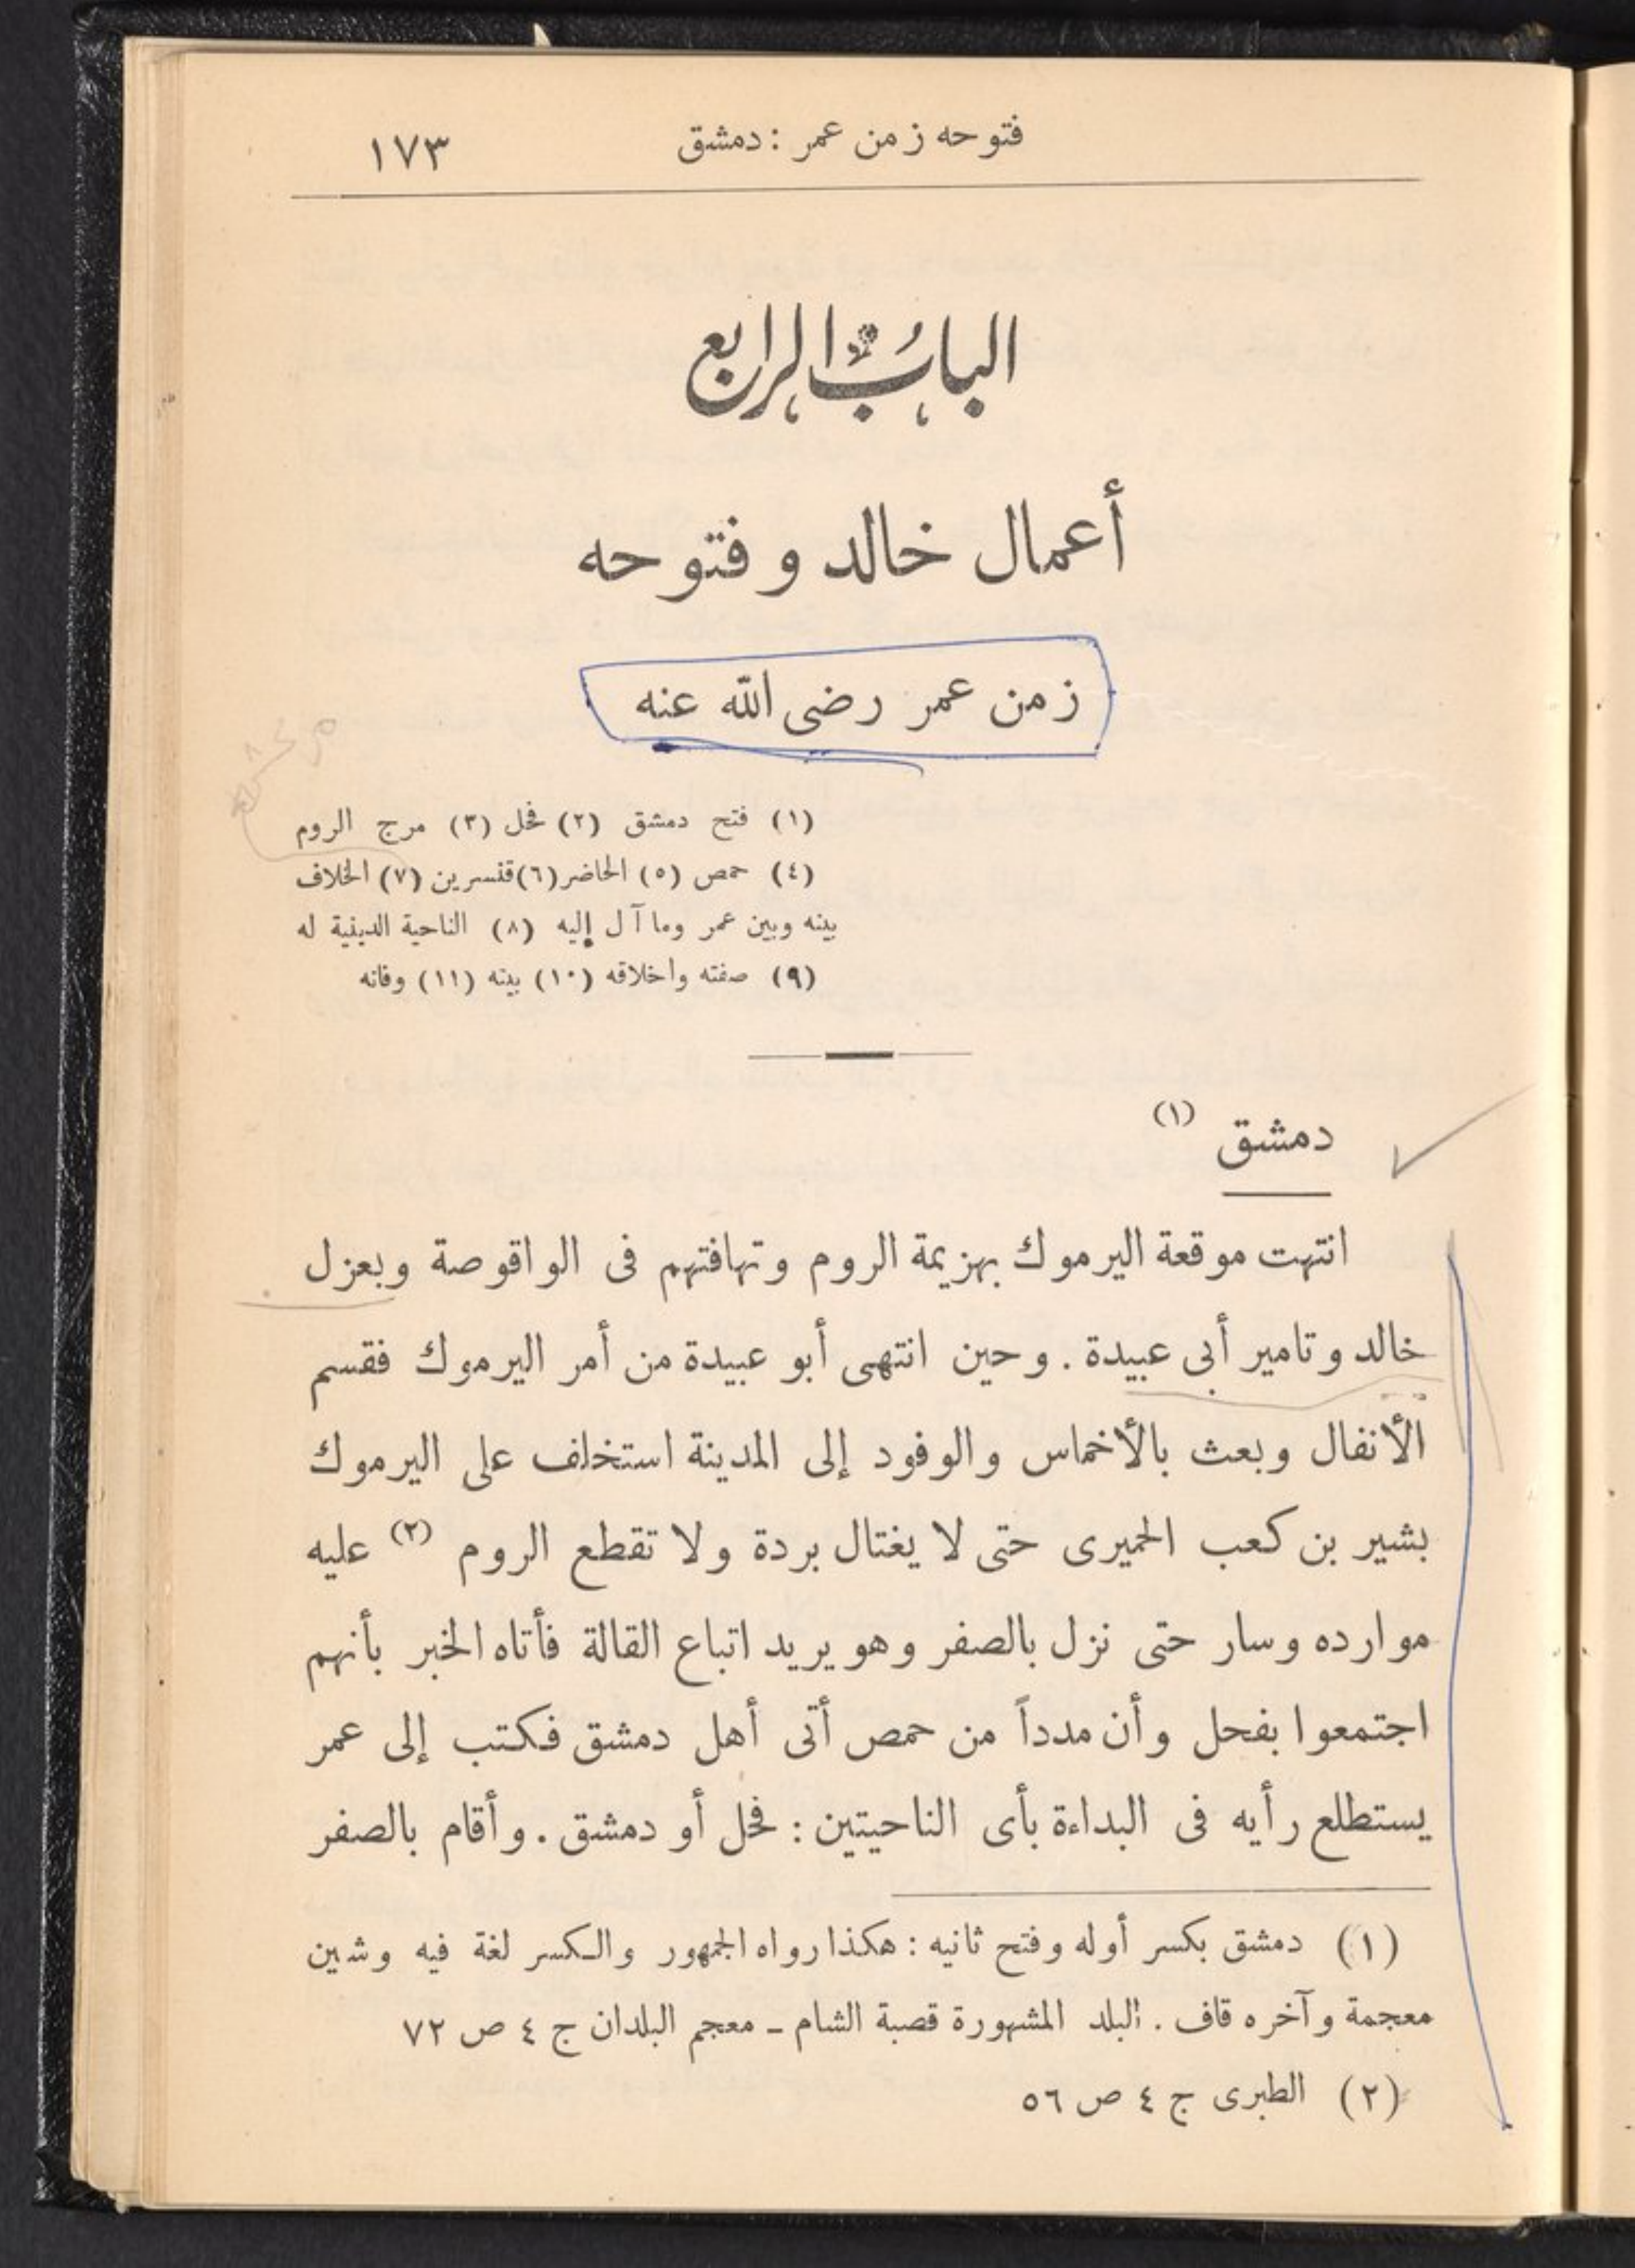 فتوحه زمن عمر : دمشق ١٧٣
الباب الرابع
أعمال خالد وفتوحه
زمن عمر رضى الله عنه
(١) فتح دمشق (٢) فحل (٣) مرج الروم
(٤) حمص (٥) الحاضر (٦) قنسرين (٧) الخلاف
بينه وبين عمر وما آل إليه (٨) الناحية الدينية له
(٩) صفته واخلاقه (١٠) بيته (١١) وفاته
دمشق (١)
انتهت موقعة اليرموك بهزيمة الروم وتهافتهم فى الواقوصة وبعزل
خالد وتامير أبى عبيدة . وحين انتهى أبو عبيدة من أمر اليرموك فقسم
الأنفال وبعث بالأخماس والوفود إلى المدينة استخلف على اليرموك
بشير بن كعب الحميرى حتى لا يغتال بردة ولا تقطع الروم (٢) عليه
موارده وسار حتى نزل بالصفر وهو يريد اتباع القالة فأتاه الخبر بأنهم
اجتمعوا بفحل وأن مدداً من حمص أتى أهل دمشق فكتب إلى عمر
يستطلع رأيه فى البداءة بأى الناحيتين : فحل أو دمشق . وأقام بالصفر
(١) دمشق بكسر أوله وفتح ثانيه : هكذا رواه الجمهور والكسر لغة فيه وشين
معجمة وآخره قاف . البلد المشهورة قصبة الشام ـ معجم البلدان ج ٤ ص ٧٢
(٢) الطبرى ج ٤ ص ٥٦